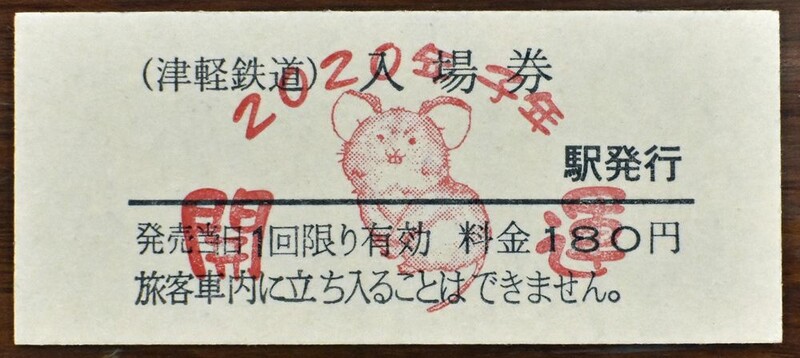 (津軽鉄道) 入場券
2020年 子年
駅発行
開運
発売当日1回限り有効 料金180円
旅客車内に立ち入ることはできません。